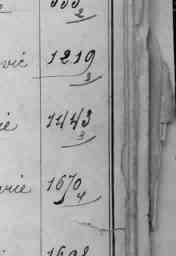 2
vić 1219
3
ie 1443
3
rie 1670
4